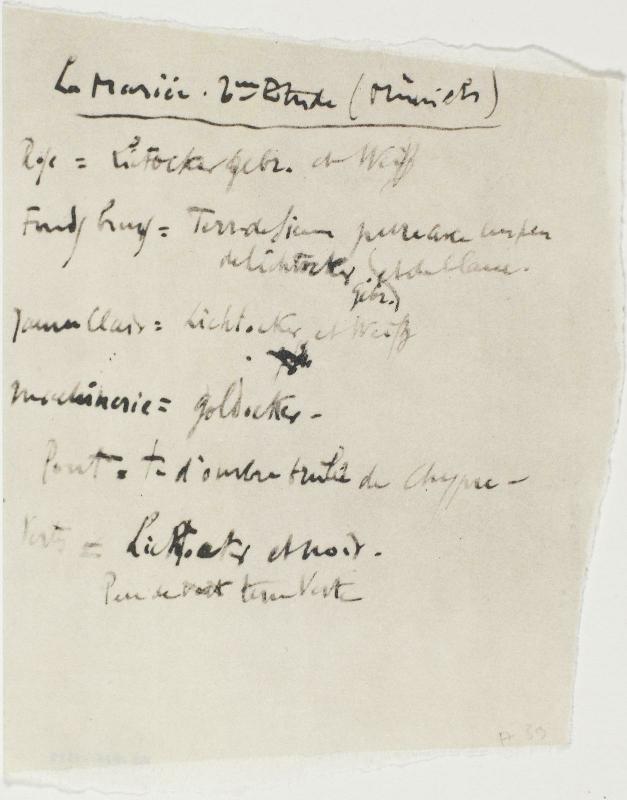 La Mariée. 2me Etude (Münich)
Rose = Lichtocker gebr. et Weiß
Fonds bruns = Terre de Sienne pure avec un peu
de Lichtocker (gebr.) et de blanc.
Jaune Clair = Lichtocker et Weiß
machinerie = goldocker –
Pont = te d'ombre brulée de chypre –
Verts = Lichtocker et noir.
Peu de terre Verte
A 39